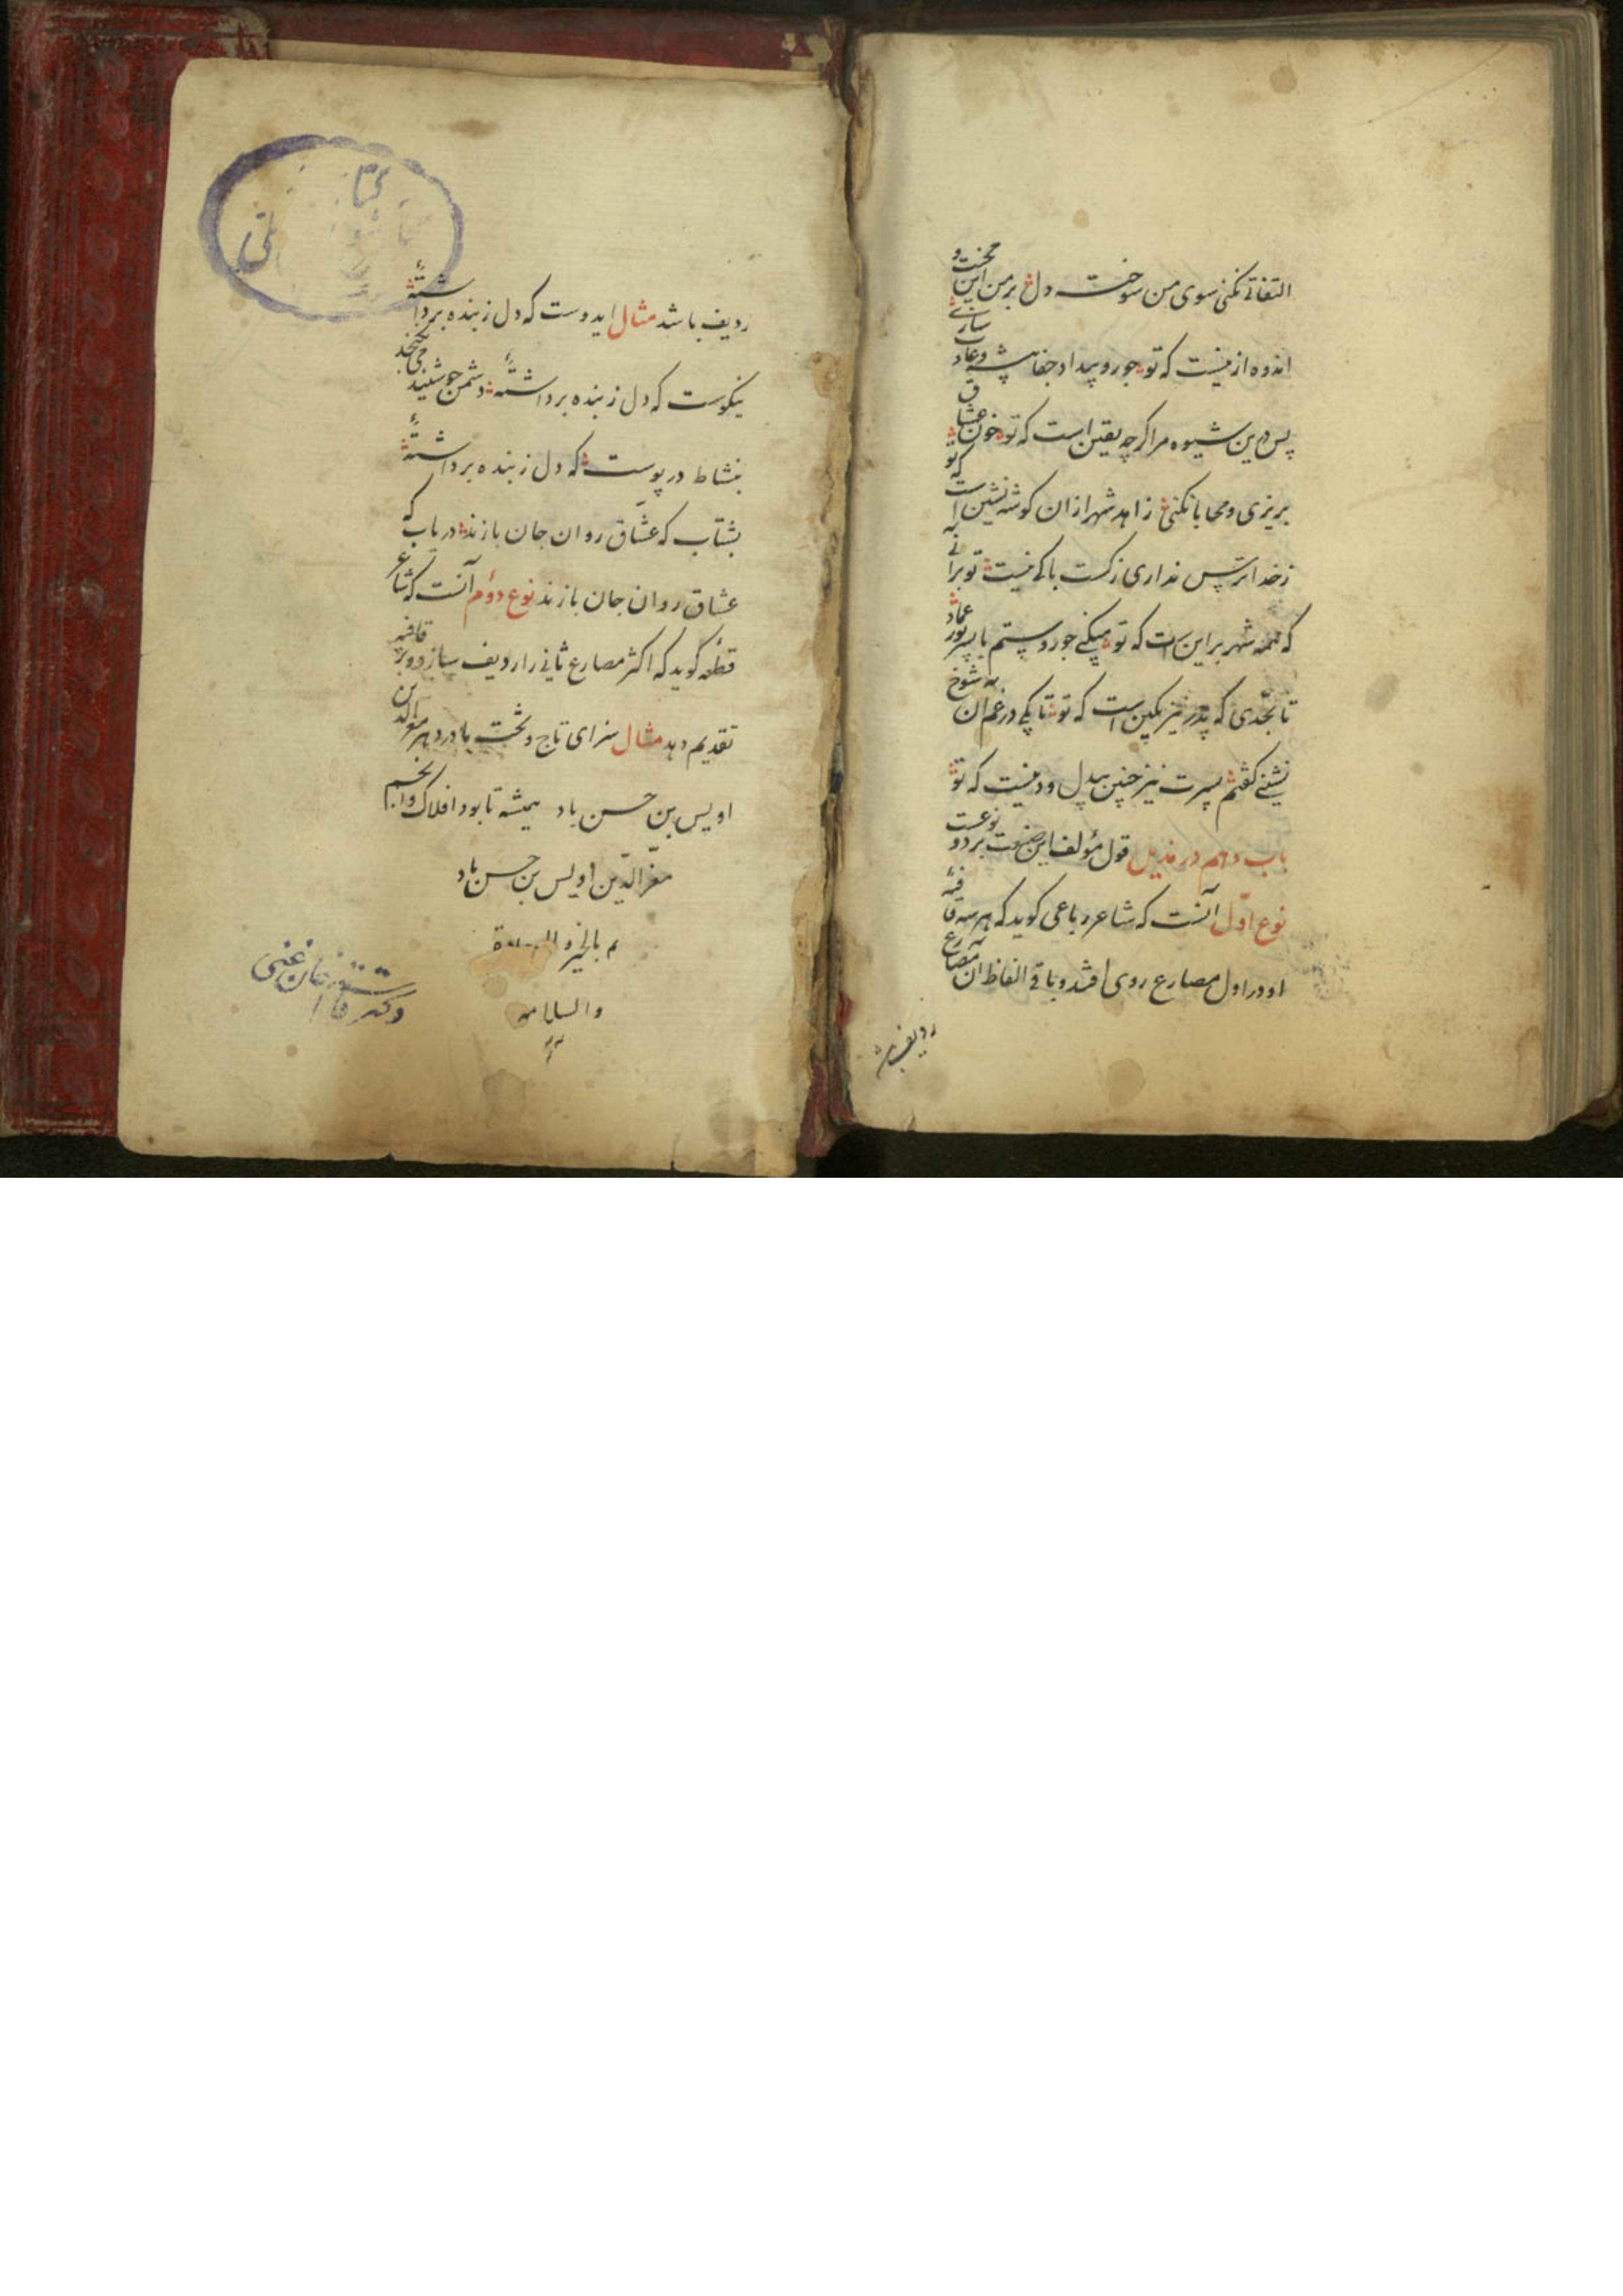 التفاتی نکنی سوی من سوخته دل بر من این محنت و
اندوه ازنیست که تو جور و بیداد و جفا پیشه و عادت سازی
پس درین شیوه مرا گرچه یقین است که تو خون عشاق
بریزی و محابا نکنی زاهد شهر ازان گوشه نشین است که تو
زخدا ترس نداری زکست باکی نیست تو برانی
که همه شهر براین است که تو میکنی جور و ستم با پسر پور عماد
تا بحدی که پدر نیز بکین است که تو تا یکی در غم آن شوخ
نشینی گفتم پسرت نیز چنین بیدل و دینست که تو
باب دهم در مذیل قول مؤلف این صنعت بر دو نوعست
نوع اوّل آنست که شاعر رباعی کوید که هر سه قافیه
او در اول مصارع روی افتد و باقی الفاظ آن مصارع
ردیف باشد
ردیف باشد مثال ایدوست که دل زبنده برداشتهٔ
نیکوست که دل زبنده برداشتهٔ دشمن چو شنید می نگنجد
بنشاط در پوست که دل زبنده برداشتهٔ
بشتاب که عشّاق روان جان بازند دریاب که
عشاق روان جان بازند نوع دوّم آنست که شاعر
قطعه کوید که اکثر مصارع ثانی را ردیف سازد و بر قافیه
تقدیم دهد مثال سزای تاج و تخت بادر دهر معزالدین
اویس بن حسن باد همیشه تا بود افلاک و انجم
معزّ الدّین اویس بن حسن باد
م بالخیر و السعادة
والسلامه
دکتر قاسم غنی